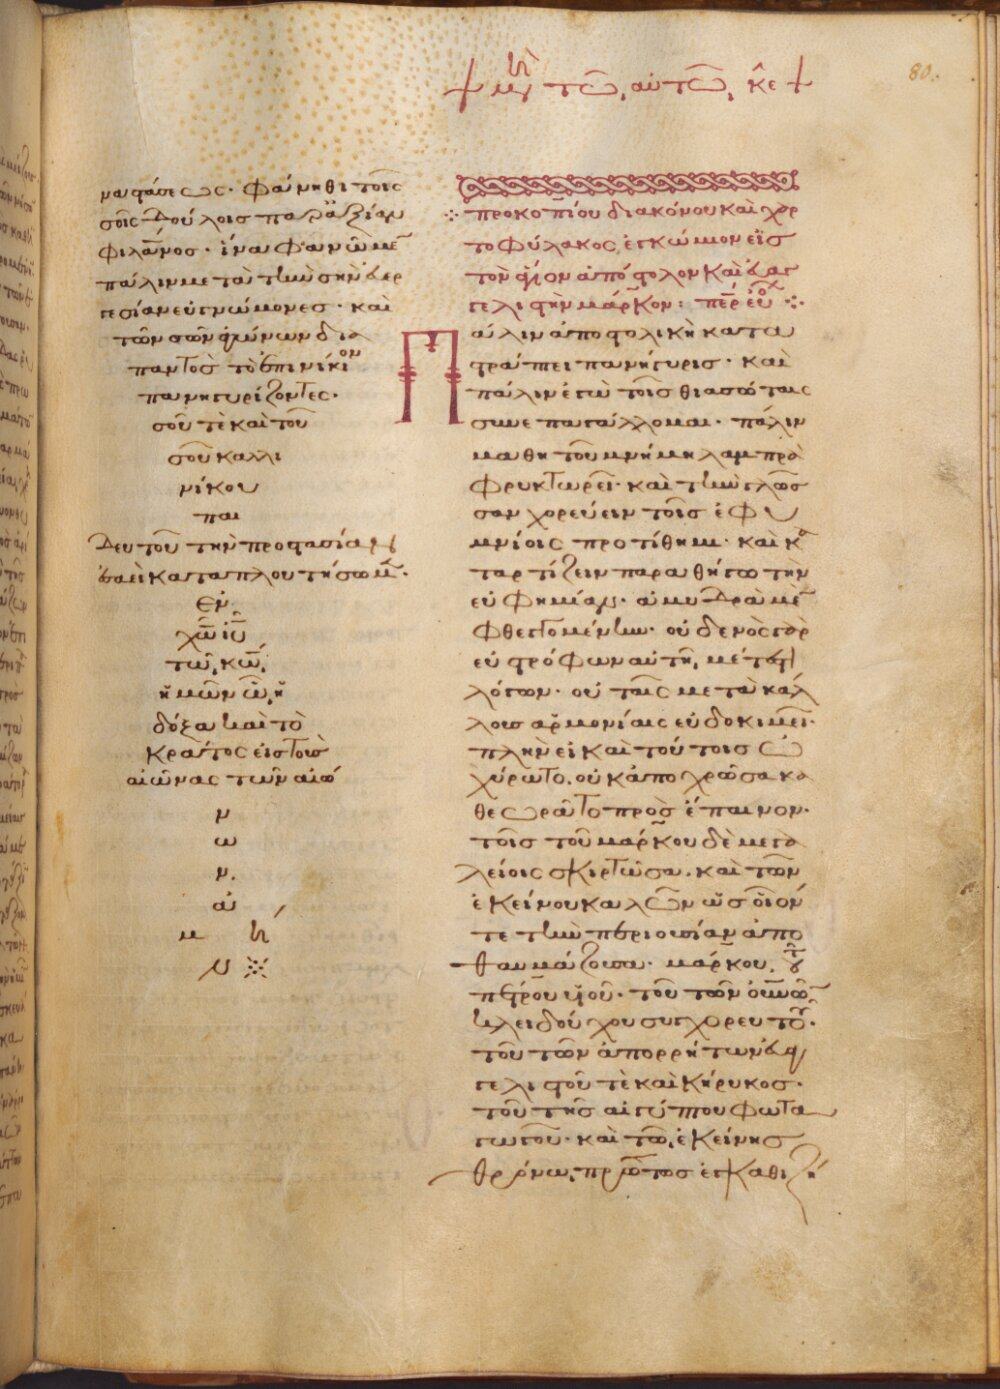 μη τῶ αὐτῶ κε
80.
ναφάσεως· φάνηθι τοῖς
σοῖς δούλοις παρ ἀξίαν
φιλάνος· ἵνα φανῶμε
πάλιν μετὰ τὴν σὴν
γεσίαν εὐγνώμονες· καὶ
τῶν σῶν ὑμνων δια
παντὸς τὸ ἐπινίκιον
πανηγυρίζοντες·
σοῦ τὲ καὶ τοῦ
σοῦ καλλι
νίκου
παι
Δευτοῦ τὴν προστασίαν
ἀεὶ καταπλουτήσωμ·
ἐν
χῶ ιῦ
τῶ κῶ
ἡμῶν ὧ ἡ
δόξα καὶ τὸ
κράτος εἰς τοὺς
αἰῶνας τῶν αἰώ
ν
ω
ν.
ἀ
μ ὴ
ν
προκοπίου διακόνου καὶ χαρ
τοφύλακος, ἐγκώμιον εἰς
τὸν ἅγιον ἀπόστολον καὶ ἐυαγ
γελιστὴν μάρκον:
Παύλιν ἀποστολικὴ κατα
στράπτει πανήγυρις· καὶ
πάλιν ἐγὼ τοῖς θιασώταις
συνεπαγάλλομαι· πάλιν
μαθητοῦ μνήμη λαμπρὰ
φρυκτωρεῖ· καὶ τὴν γλῶσ
σαν χορεύειν τοῖς ἐφυ
μνίοις προτίθημι· καὶ κα
ταρτίζειν παραθήγω τὴν
εὐφημίαν· ἀμυδρὰ μὲ
φθεγγομένην· οὐδενὸς γὰρ
εὐστρόφων αὐτῆ, μέτεστι
λόγων· οὐ ταῖς μετὰ κάλ
λους ἁρμονίαις εὐδοκιμεῖ·
πλὴν εἰ καὶ τούτοις ὠ
χύρωτο. οὐκ ἀποχρῶσα κα
θεωρᾶτο πρὸς ἔπαινον·
τοῖς τοῦ μάρκου δὲ μεγα
λείοις σκιρτῶσα. καὶ τῶν
ἐκείνου καλῶν ὡς οἷόν
τε τὴν περιουσίαν ἀπο
θαυμάζουσα· μάρκου, τοῦ
πέτρου υἱοῦ· τοῦ τῶν οὐνῶν
κλειδούχου συγχορευτοῦ·
τοῦ τῶν ἀπορρήτων ἐυαγ
γελιστοῦ τὲ καὶ κήρυκος·
τοῦ τῆς αἰγύπτου φωτα
γωγοῦ· καὶ τῶ ἐκείνης
θρόνω, πρῶτος ἐγκαθιζή